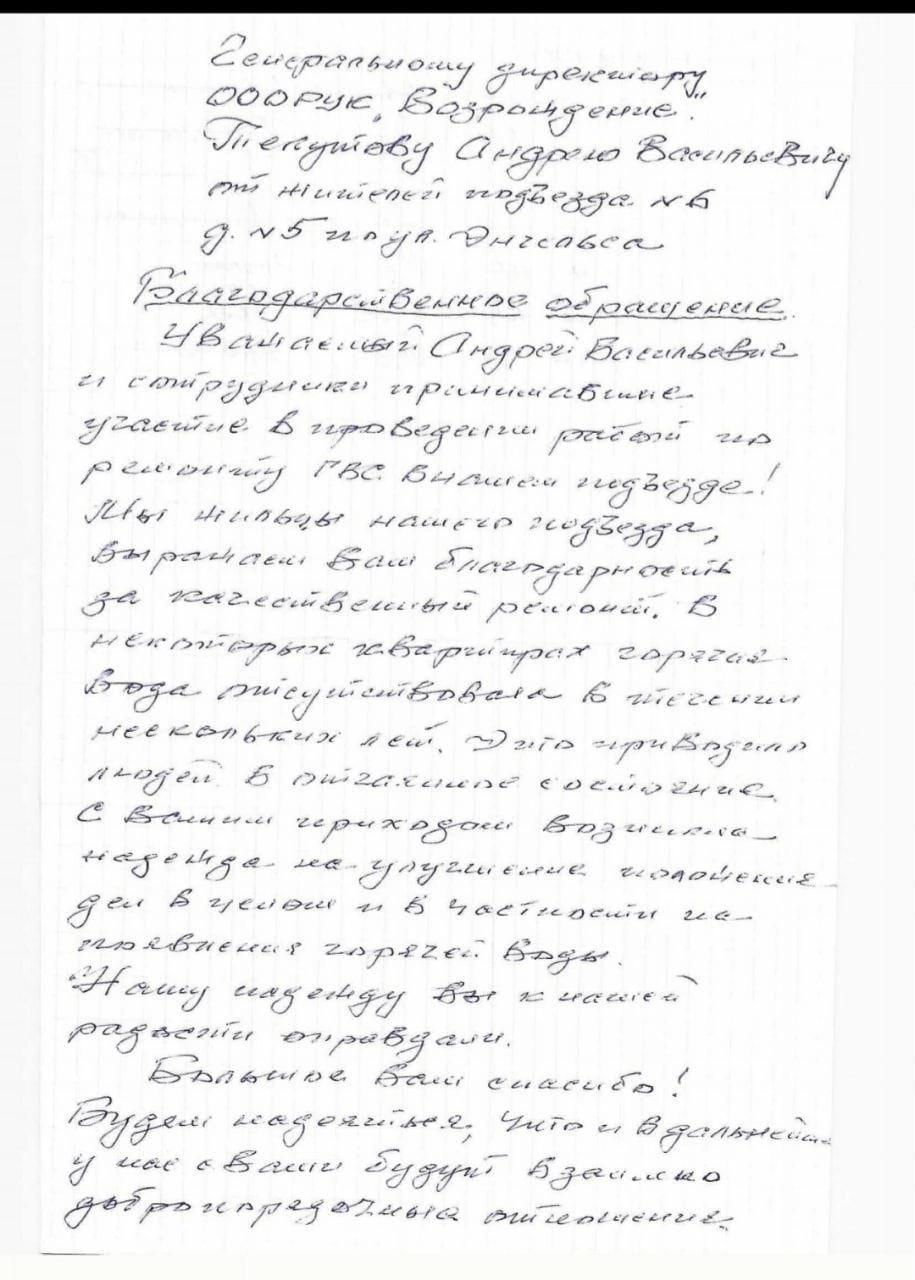 Генеральному директору
ОООРУК „Возрождение".
Текутову Андрею Васильевичу
от жителей подъезда №6
д. №5 по ул. Энгельса
Благодарственное обращение.
Уважаемый Андрей Васильевич
и сотрудники принимавшие
участие в проведении работ по
ремонту ГВС в нашем подъезде!
Мы жильцы нашего подъезда,
выражаем Вам благодарность
за качественный ремонт. В
некоторых квартирах горячая
вода отсутствовала в течении
нескольких лет. Это приводило
людей в отчаянное состояние.
С Вашим приходом возникла
надежда на улучшение положения
дел в целом и в частности на
появления горячей воды.
Нашу надежду вы к нашей
радости оправдали.
Большое Вам спасибо!
Будем надеяться, что и в дальнейшем
у нас с Вами будут взаимно
добропорядочные отношения.